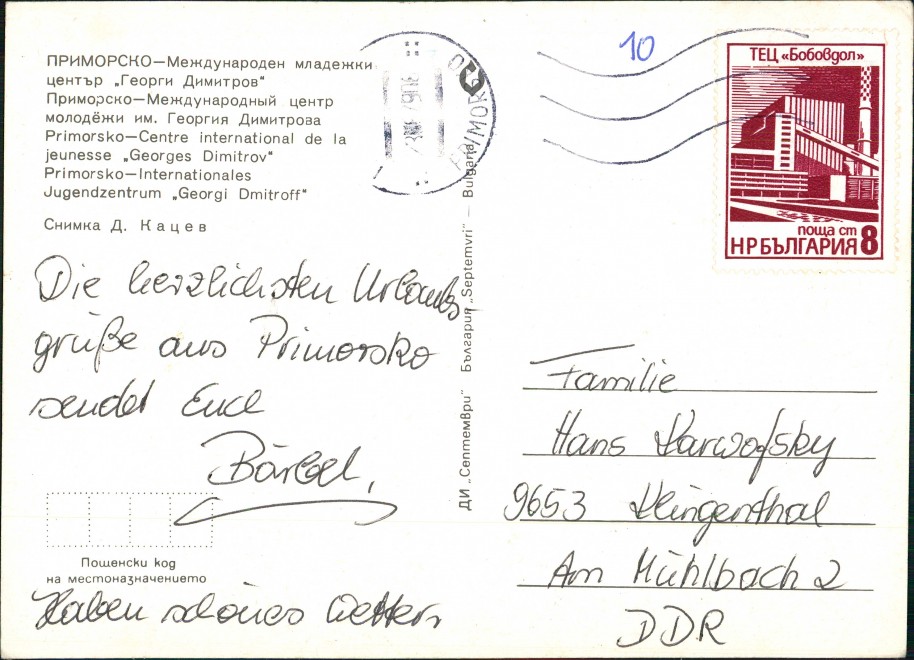 ПРИМОРСКО—Международен младежки
център „Георги Димитров"
Приморско—Международный центр
молодёжи им. Георгия Димитрова
Primorsko—Centre international de la
jeunesse „Georges Dimitrov"
Primorsko—Internationales
Jugendzentrum „Georgi Dmitroff"
Снимка Д. Кацев
Die herzlichsten Urlaubs
grüße aus Primorsko
sendet Euch
Bärbel,
Пощенски код
на местоназначението
Haben schönes Wetter.
ДИ „Септември" България „Septemvri" — Bulgaria
10
PRIMOR
ТЕЦ «Бобовдол»
поща ст
НР БЪЛГАРИЯ 8
Familie
Hans Karwofsky
9653 Klingenthal
Am Mühlbach 2
DDR